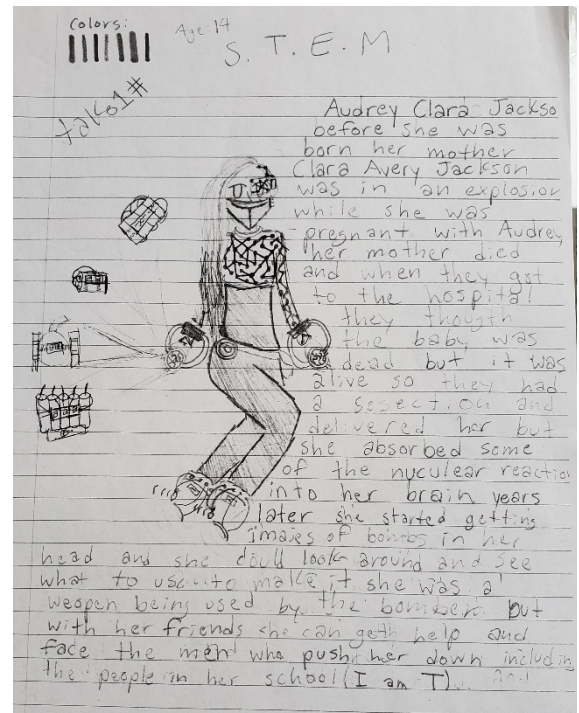 Colors:
Age: 14
S. T. E. M
Audrey Clara Jackso
before she was
born her mother
Clara Avery Jackson
was in an explosion
while she was
pregnant with Audrey
her mother died
and when they got
to the hospital
they though
the baby was
dead but it was
alive so they had
a sesection and
delivered her but
she absorbed some
of the nyculear reactio
into her brain years
later she started getting
images of bombs in her
head and she could look around and see
what to use to make it she was a
weapen being used by the bomber but
with her friends she can geth help and
face the men who push her down includin
the people in her school (I am T)